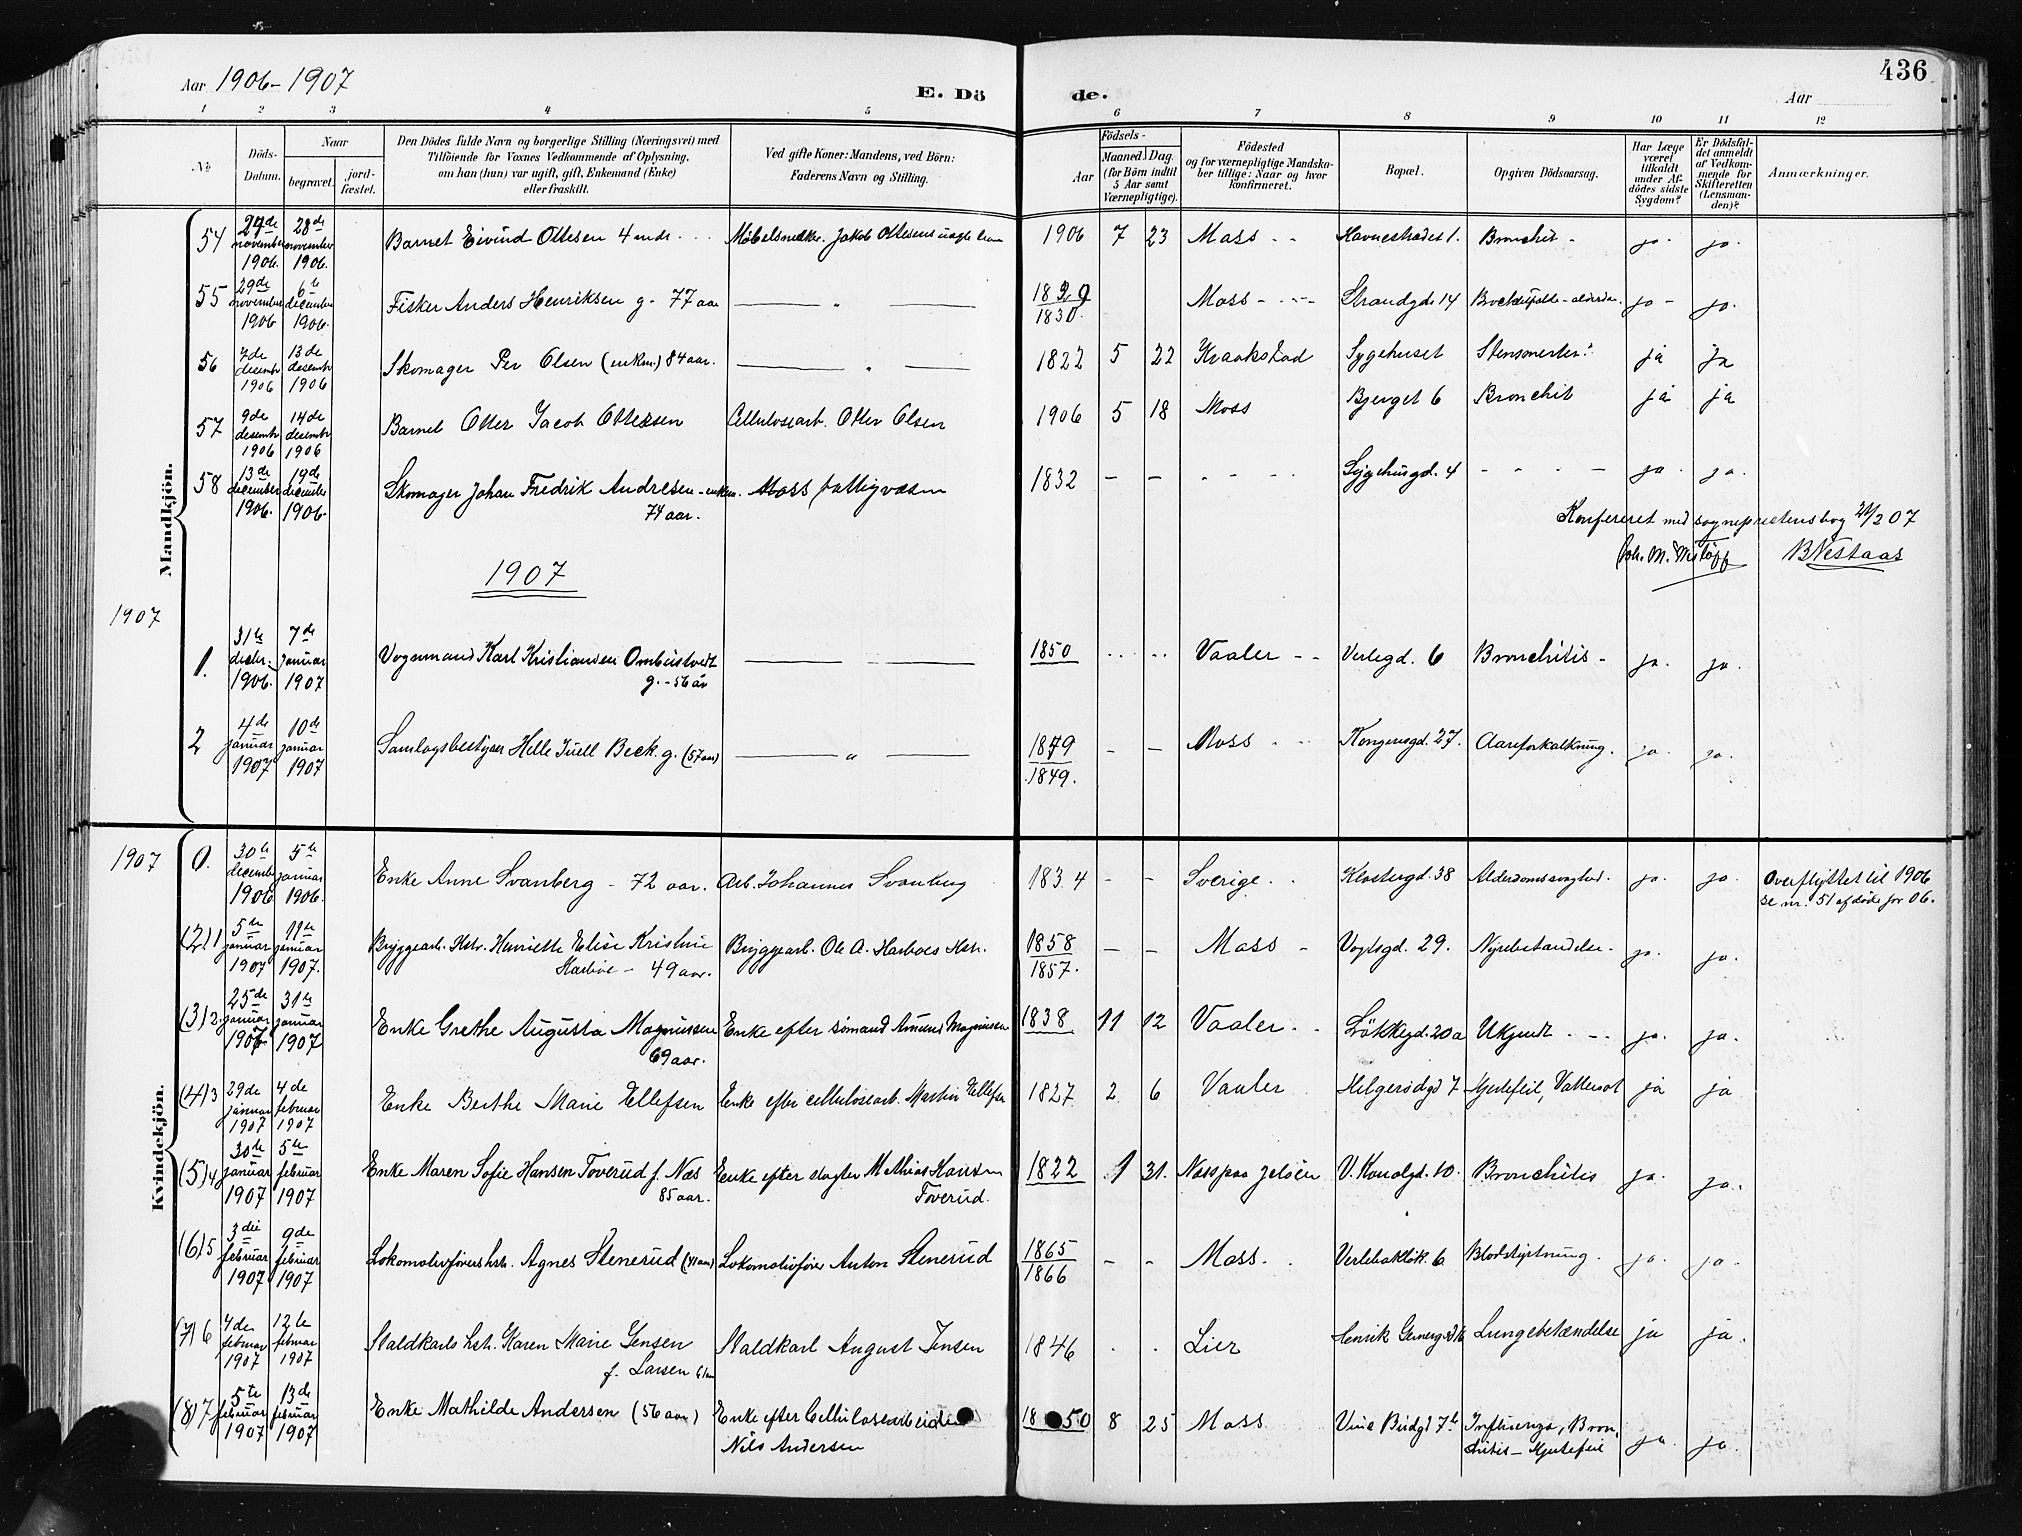 436
Aar 1906-1907
E. Dö de.
Aar
1 2 3 4 5 6 7 8 9 10 11 12
No
Döds-Datum.
Naar
begravet.
jord-fæstet.
Den Dödes fulde Navn og borgerlige Stilling (Næringsvei) med
Tilföiende for Voxnes Vedkommende af Oplysning,
om han (hun) var ugift, gift, Enkemand (Enke)
eller fraskilt.
Ved gifte Koner: Mandens, ved Börn:
Faderens Navn og Stilling.
Födsels-
Aar
Maaned. Dag.
(for Börn indtil
5 Aar samt
Værnepligtige).
Födested
og for værnepligtige Mandska-
ber tillige: Naar og hvor
konfirmeret.
Bopæl.
Opgiven Dödsaarsag.
Har Læge
været
tilkaldt
under Af-
dödes sidste
Sygdom?
Er Dödsfal-
det anmeldt
af Vedkom-
mende for
Skifteretten
(Lensman-
den)?
Anmærkninger.
Mandkjön.
54 24de november 1906. 28de november 1906. Barnet Eivind Ottesen 4 mdr. Möbelsnedkr. Jakob Ottesens uægte barn 1906 7 23 Moss Havnestrædet 1. Bronchit - ja. ja.
55 29de november 1906 6te december 1906. Fisker Anders Henriksen g. 77 aar — " — 1829 1830. Moss Strandgd. 14 ja - ja.
56 7de desembr 1906 13de desembr 1906 Skomager Per Olsen (enkm.) 84 aar. — " — 1822 5 22 Kraakstad Sygehuset ja ja
57 9de desembr 1906 14de desembr 1906 Barnet Otter Jacob Ottersen Cellulosearb. Otter Olsen 1906 5 18 Moss Bjerget 6 Bronchit ja ja
58 13de december 1906. 19de december 1906. Skomager Johan Fredrik Andresen - enkm. 74 aar. Moss fattigvæsen 1832 - - - - Sygehusgd. 4 - - - ja. ja.
Konfereret med sogneprestens bog 21/2 07
BNestaas
1907
1907
1. 31te decbr. 1906. 7de januar 1907 Vognmand Karl Kristiansen Ombustvedt g. - 56 år 1850 Vaaler Verlegd. 6 Bronchitis - ja. ja.
2 4de januar 1907 10de januar 1907 Samlagsbestyrer Helle Juell Beck. g. (57 aar) — " — 1849 1849. - - Moss Kongensgd. 27. Aareforkalkning. ja. ja.
Kvindekjön.
1907
0. 30te decembr 1906 5te januar 1906. Enke Anne Svanberg - 72 aar. Arb. Johannes Svanberg 1834 - - Sverige. Klostergd. 38 Alderdomssvaghed. ja. ja. Overflyttet til 1906
se nr. 51 af døde for 06.
(2) 1 5te januar 1907 11te januar 1907. Bryggearb. Hstr. Henriette Elise Kristine Harboe - 49 aar. Bryggearb. Ole A. Harboes Hstr. 1858 1857. - - Moss Vogtsgd. 29. Nyrebetændelse. ja. ja.
(3) 2. 25de januar 1907 31te januar 1907 Enke Grethe Augusta Magnussen 69 aar. Enke efter sømand Amund Magnussen 1838 11 12 Vaaler Løkkegd. 20a Ukjendt ja. ja.
(4) 3 29de januar 1907 4de februar 1907 Enke Berthe Marie Ellefsen Enke efter cellulosearb. Martin Ellefsen 1827 2 6 Vaaler Helgerødgd 7 Hjertefeil, Vattersot ja ja
(5) 4 30te januar 1907 5te februar 1907 Enke Maren Sofie Hansen Toverud f. Næs 85 aar. Enke efter slagter Mathias Hansen Toverud. 1822 1 31. Næs paa Jeløen V. Kanalgd. 10. Bronchitis ja. ja.
(6) 5 3die februar 1907 9de februar 1907 Lokomotivførers hstr. Agnes Stenerud (41 aar) Lokomotivfører Anton Stenerud 1865 1866 - - Moss. 6 Blodstyrtning. ja. ja.
(7) 6 4de februar 1907 12te februar 1907 Staldkarls hstr. Karen Marie Jensen f. Larsen 61 aar Staldkarl August Jensen 1846 Lier Henrik Gernersgd Lungebetændelse ja ja.
(8) 7 5te februar 1907 13de februar 1907 Enke Mathilde Andersen (56 aar) Enke efter Cellulosearbeider Nils Andersen 1850 8 25 Moss 7b Influenza, Bron-
chitis - Hjertefeil ja ja.